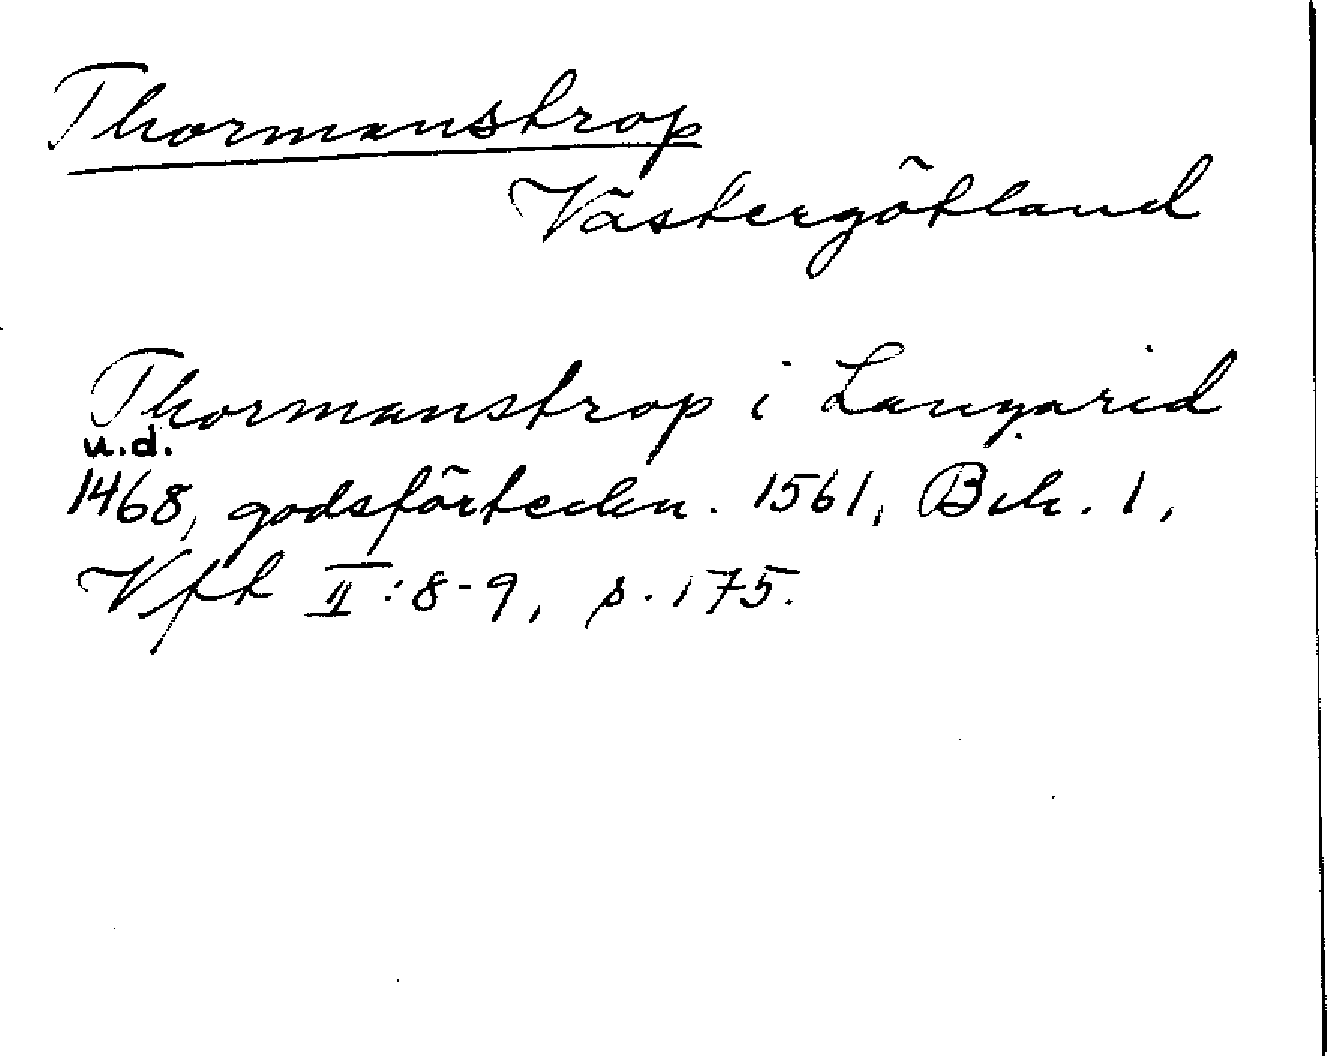 Thormanstrop
Västergötland
Thormanstrop i Langarid
u.d.
1468, godsförteckn. 1561, Bih. 1,
Vft II:8-9, s. 175.